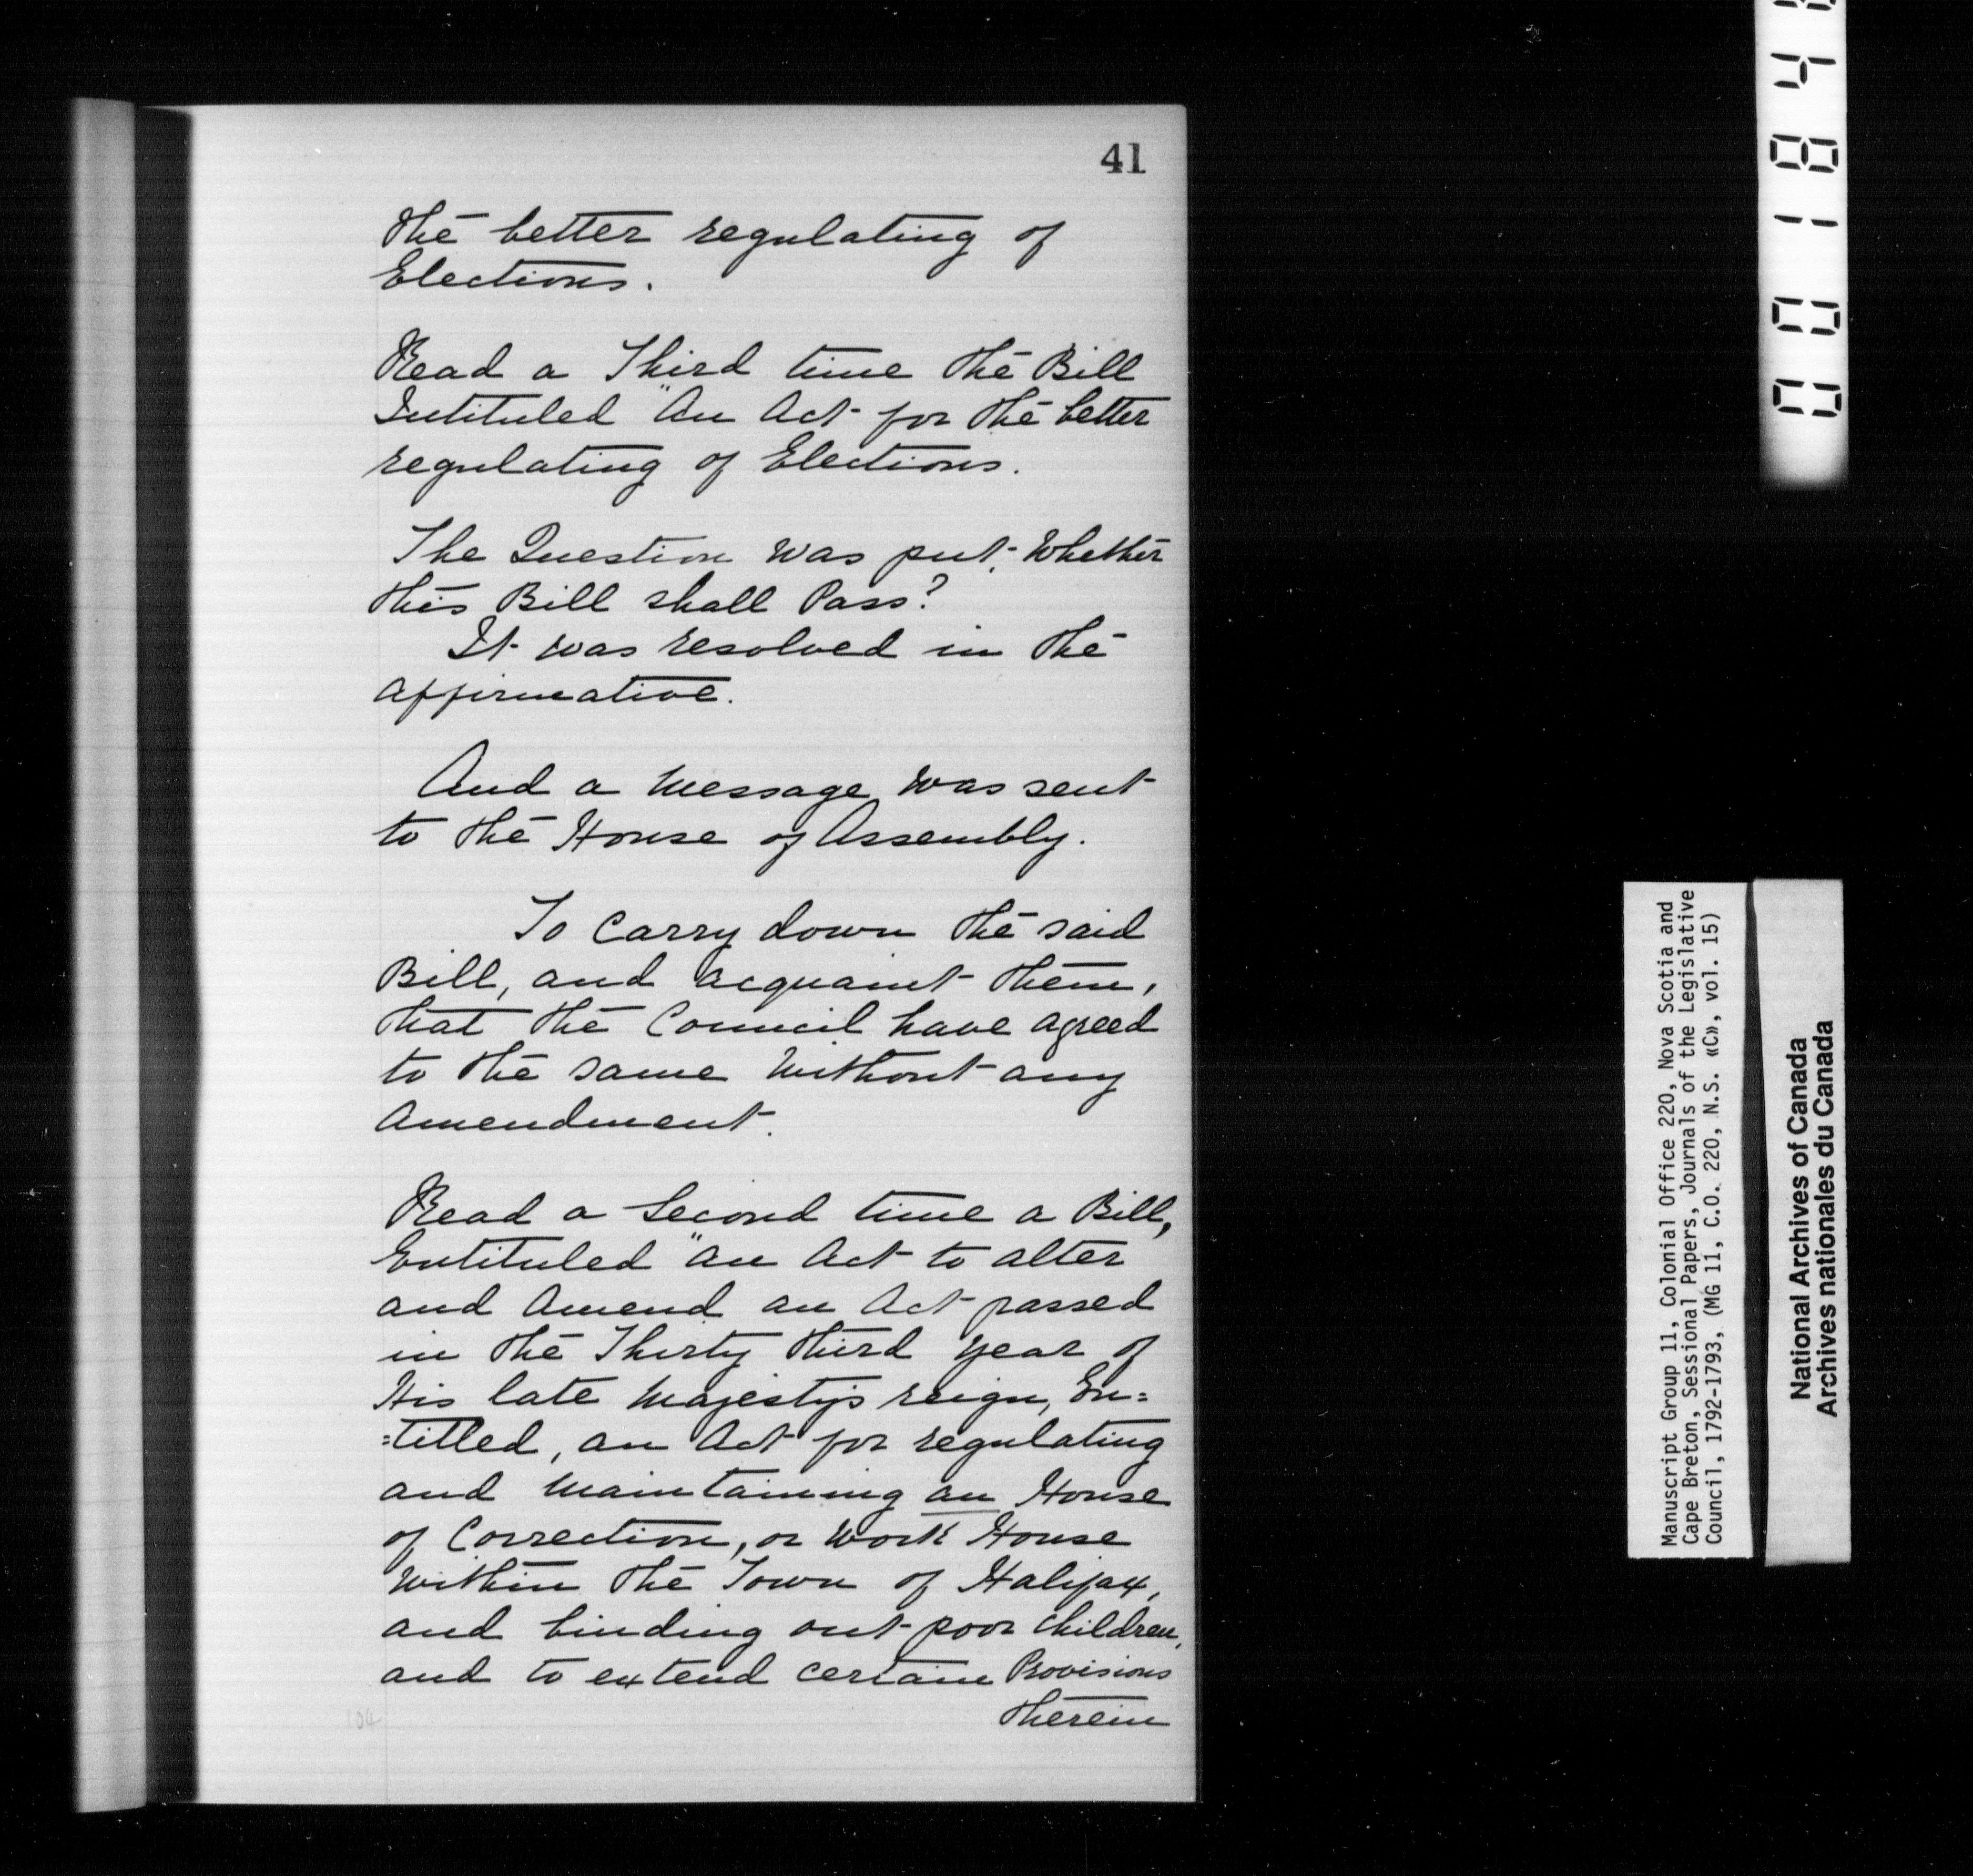 41
the better regulating of
Elections.
Read a Third time the Bill
Intituled "An Act for the better
regulating of Elections.
The Question was put, Whether
this Bill shall Pass?
It was resolved in the
affirmative.
And a Message was sent
to the House of Assembly.
To Carry down the said
Bill, and acquaint them,
that the Council have agreed
to the same without any
amendment.
Read a Second time a Bill,
Entituled "An Act to alter
and Amend an Act passed
in the Thirty third year of
His late Majesty's reign, En=
=titled, an Act for regulating
and Maintaining an House
of Correction, or Work House
within the Town of Halifax,
and binding out poor Children,
and to extend certain Provisions
therein
104
Manuscript Group 11, Colonial Office 220, Nova Scotia and
Cape Breton, Sessional Papers, Journals of the Legislative
Council, 1792-1793, (MG 11, C.O. 220, N.S. «C», vol. 15)
National Archives of Canada
Archives nationales du Canada
0 0 1 8 4